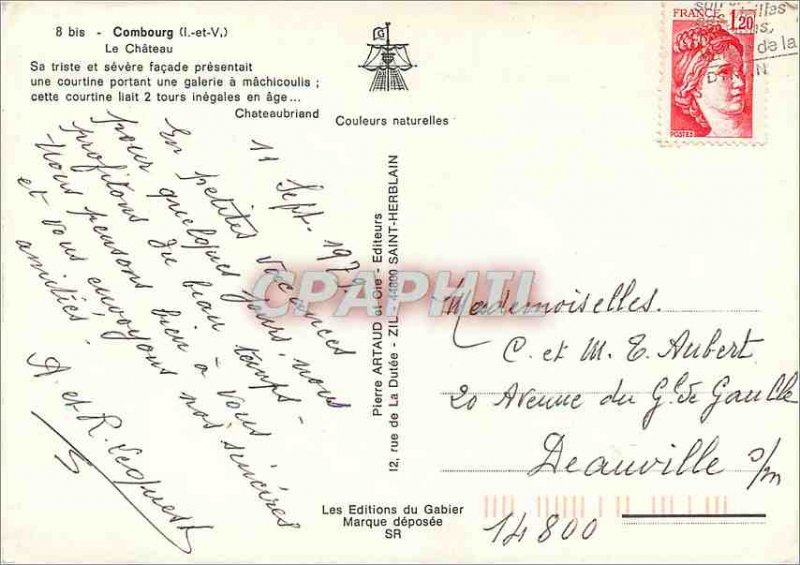 8 bis - Combourg (I.-et-V.)
Le Château
Sa triste et sévère façade présentait
une courtine portant une galerie à mâchicoulis ;
cette courtine liait 2 tours inégales en âge...
Chateaubriand
Couleurs naturelles
11 Sept. 1977.
En petites vacances
pour quelques jours, nous
profitons du beau temps.
Nous pensons bien à vous
et vous envoyons nos sincères
amitiés.
A. et R.
Pierre ARTAUD et Cie - Editeurs
12, rue de La Dutée - ZIL - 44800 SAINT-HERBLAIN
Les Editions du Gabier
Marque déposée
SR
FRANCE
1,20
POSTES
de la
CPAPHIL
Mademoiselles.
C. et M. T. Aubert
20 Avenue du Gl de Gaulle
Deauville s/m
14800